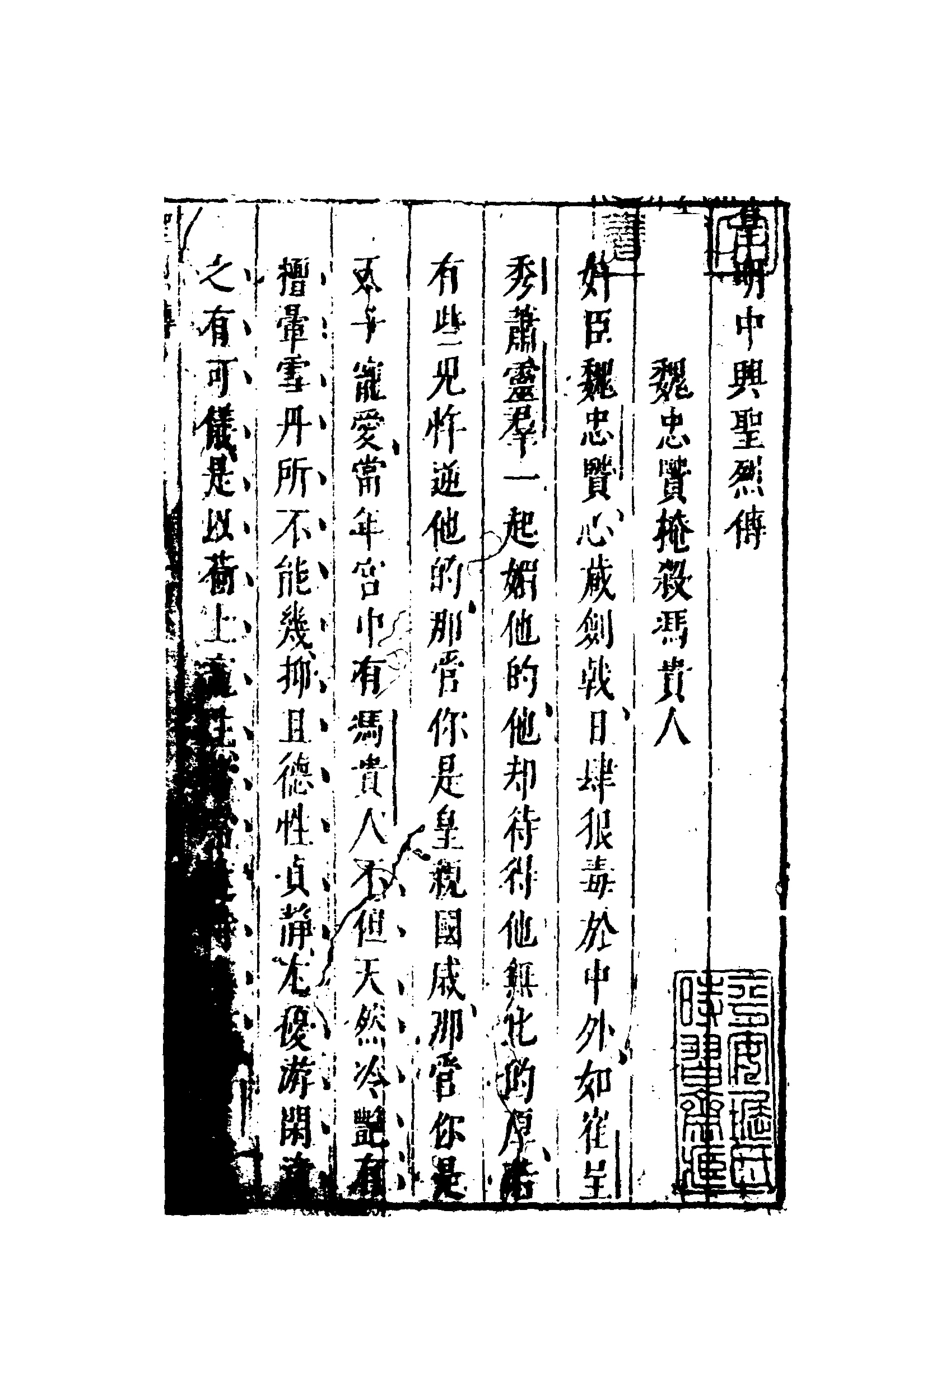 皇明中興聖烈傳
魏忠賢掩殺馮貴人
奸臣魏忠賢心藏劍戟日肆狠毒於中外如崔呈
秀蕭靈羣一起媚他的他却待得他無比的厚若
有些兒忤逆他的那管你是皇親國戚那管你是
天子寵愛當年宮中有馮貴人不但天然冷艷有
搢暈雪丹所不能幾抑且德性貞靜尤優游閑
之有可儀是以荷上